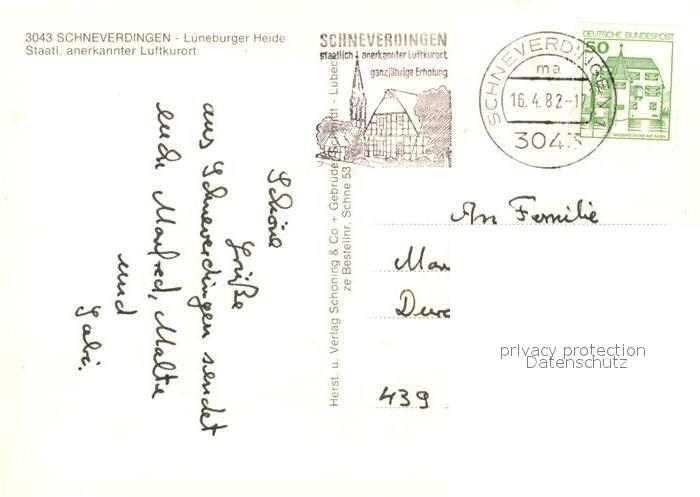 3043 SCHNEVERDINGEN - Lüneburger Heide
Staatl. anerkannter Luftkurort
SCHNEVERDINGEN
staatlich anerkannter Luftkurort
ganzjährige Erholung
SCHNEVERDINGEN 1
ma
16.4.82-17
3043
DEUTSCHE BUNDESPOST
50
WASSERSCHLOSS INZLINGEN
Schöne
Grüße
aus Schneverdingen sendet
euch Manfred, Malte
und
Gabi.
Herst. u. Verlag Schöning & Co + Gebrüder Schmidt - Lübeck
ze Bestellnr. Schne 53
An Familie
Ma
De
439
privacy protection
Datenschutz